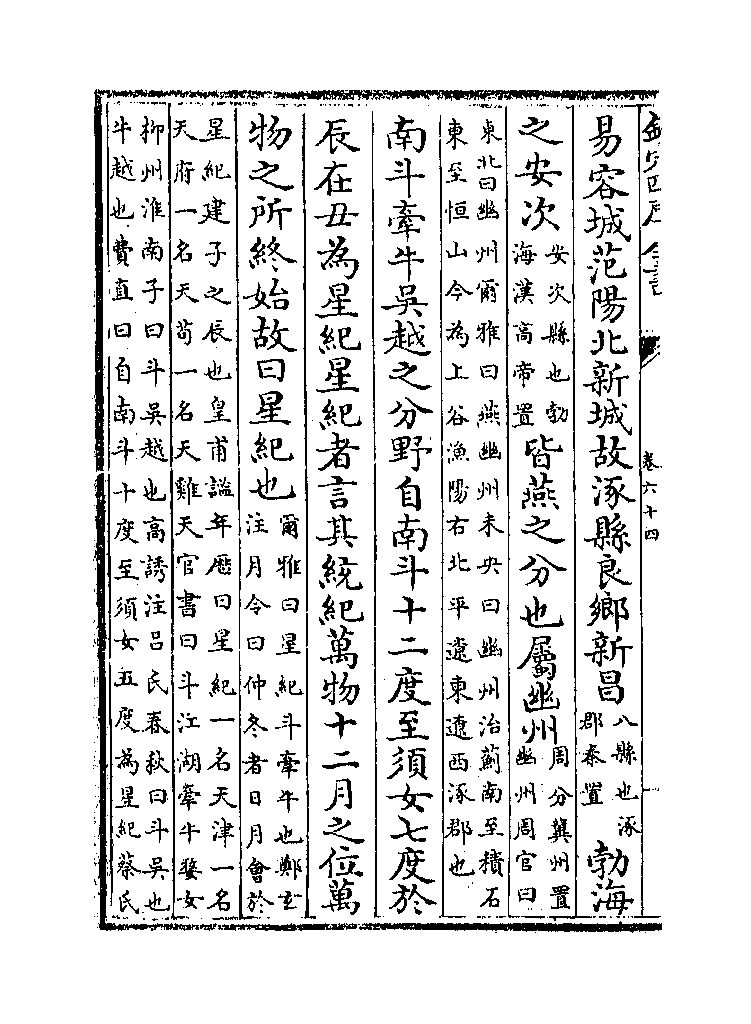 欽定四庫全書
卷六十四
易容城范陽北新城故涿縣良鄉新昌八縣也涿郡秦置勃海
之安次安次縣也勃海漢高帝置皆燕之分也屬幽州周分冀州置幽州周官曰
東北曰幽州爾雅曰燕幽州未央曰幽州治薊南至積石
東至恒山今為上谷漁陽右北平遼東遼西涿郡也
南斗牽牛吳越之分野自南斗十二度至須女七度於
辰在丑為星紀星紀者言其統紀萬物十二月之位萬
物之所終始故曰星紀也爾雅曰星紀斗牽牛也鄭玄注月令曰仲冬者日月會於
星紀建子之辰也皇甫謐年歷曰星紀一名天津一名
天府一名天苟一名天雞天官書曰斗江湖牽牛婺女
柳州淮南子曰斗吳越也高誘注呂氏春秋曰斗吳也
牛越也費直曰自南斗十度至須女五度為星紀蔡氏